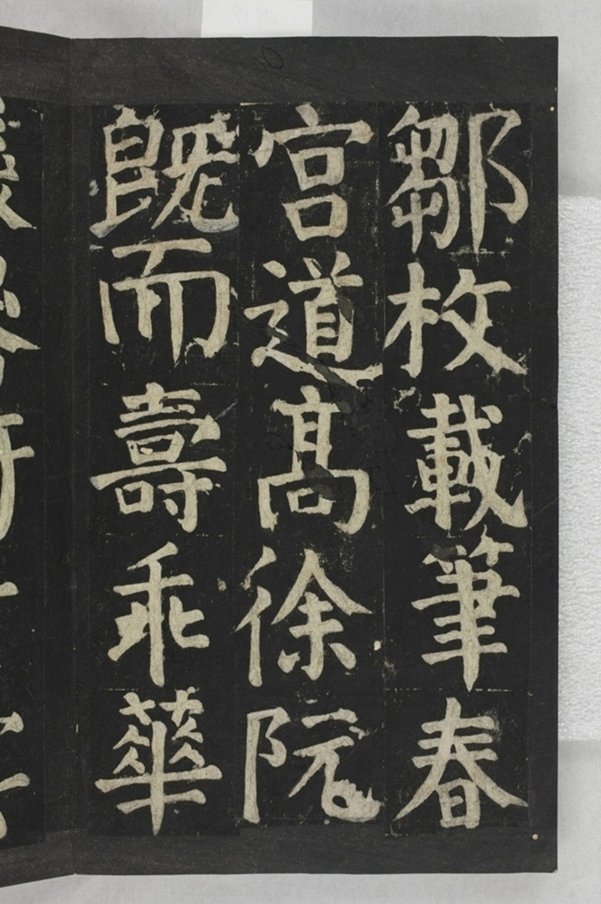 鄒枚載筆春
宮道髙徐阮
旣而壽乖華